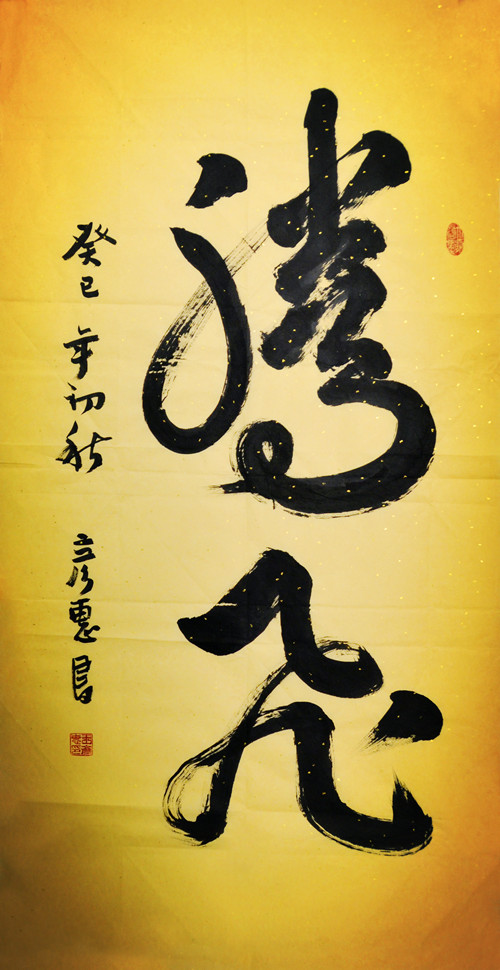 腾飞
癸巳年初秋 彦惠昌